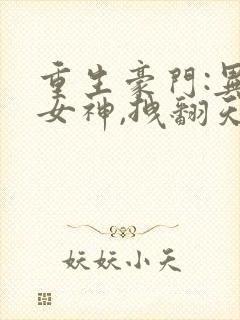 重生豪門:異
女神,拽翻天
妖妖小天